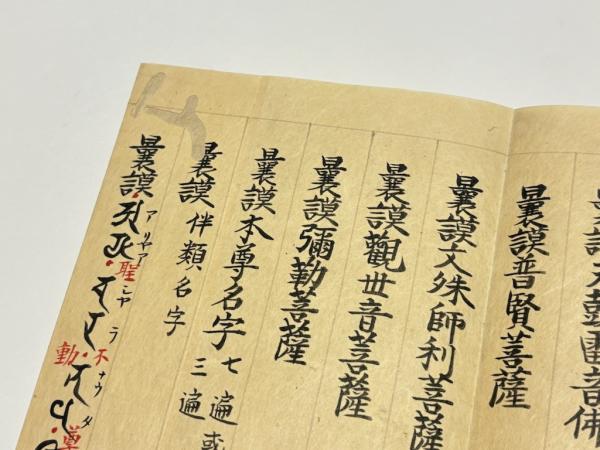 天鼓雷音佛
曩謨普賢菩薩
曩謨文殊師利菩薩
曩謨觀世音菩薩
曩謨彌勒菩薩
曩謨本尊名字七遍或三遍
曩謨伴類名字
曩謨
アリヤア
聖
シャラ
不
ナウタ
動
尊